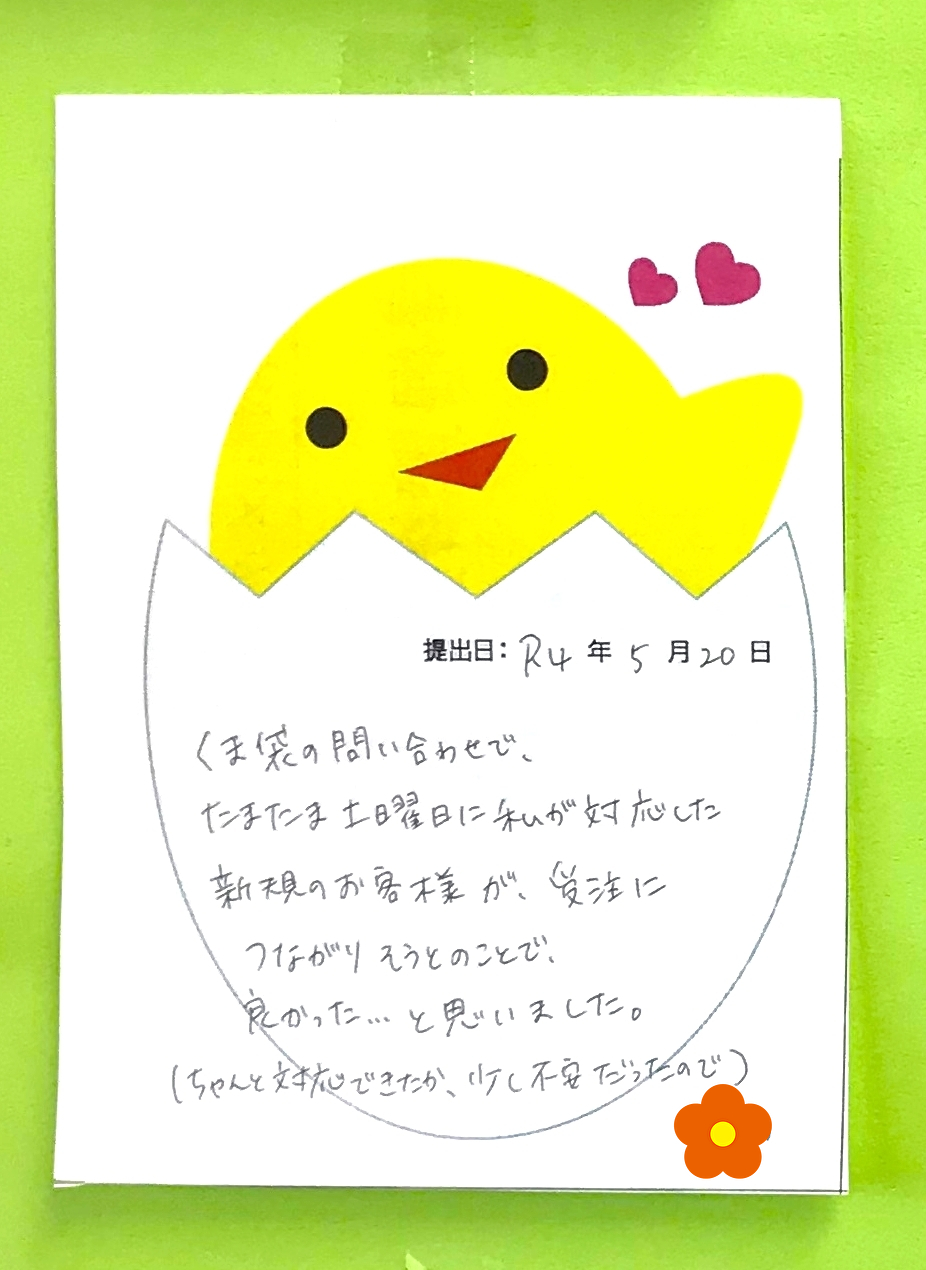 提出日：R4年5月20日
くま袋の問い合わせで、
たまたま土曜日に私が対応した
新規のお客様が、受注に
つながりそうとのことで、
良かった…と思いました。
（ちゃんと対応できたか、少し不安だったので）